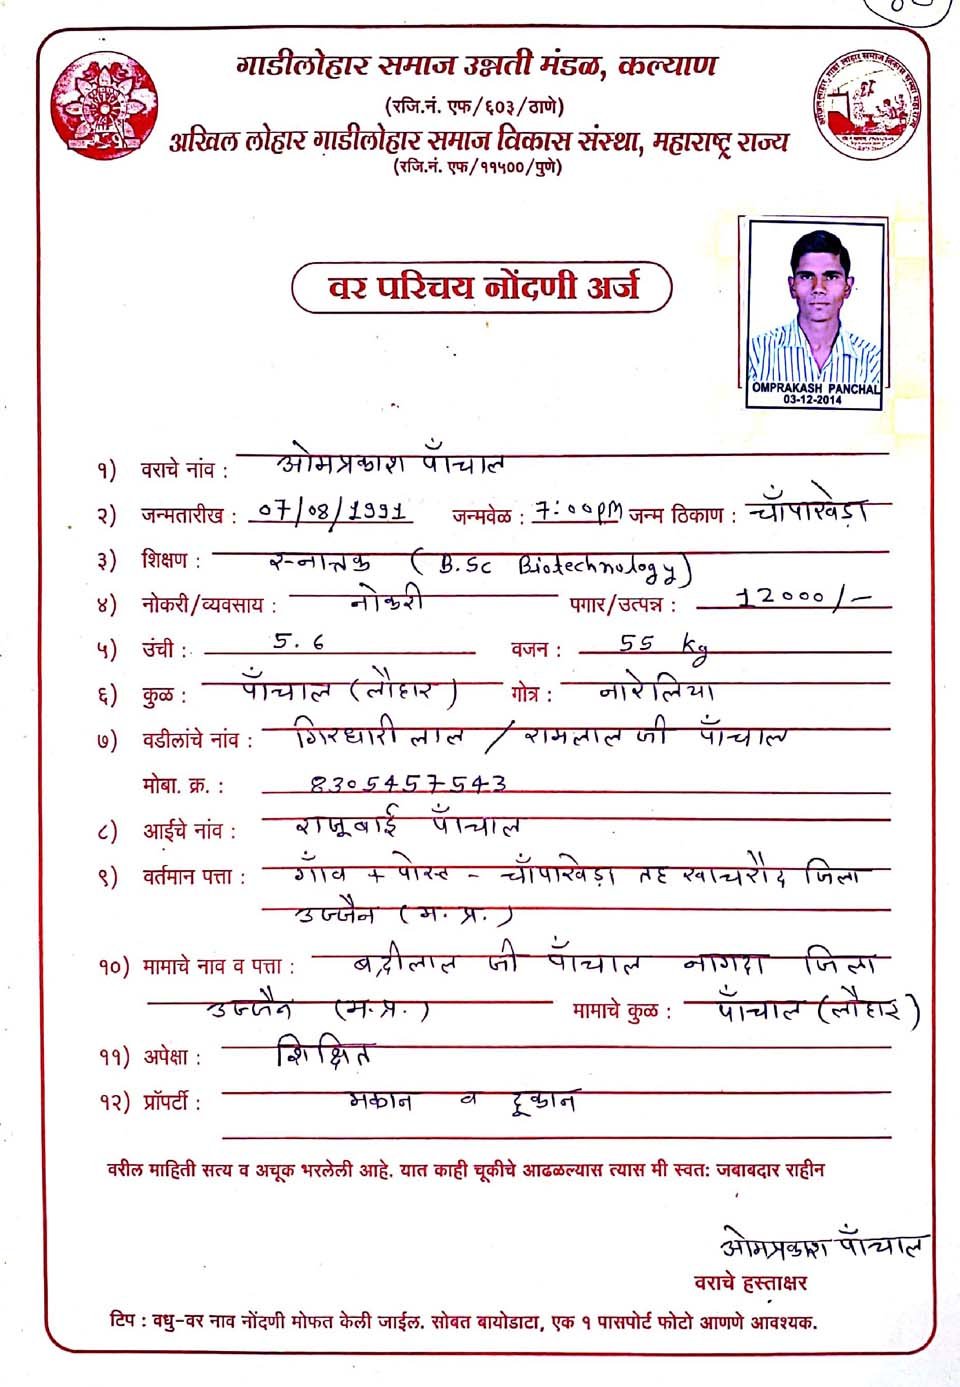 गाडीलोहार समाज उन्नती मंडळ, कल्याण
(रजि.नं. एफ/६०३/ठाणे)
अखिल लोहार गाडीलोहार समाज विकास संस्था, महाराष्ट्र राज्य
(रजि.नं. एफ/११५००/पुणे)
वर परिचय नोंदणी अर्ज
OMPRAKASH PANCHAL
03-12-2014
१) वराचे नांव : ओमप्रकाश पाँचाल
२) जन्मतारीख : 07/08/1991 जन्मवेळ : 7:00pm जन्म ठिकाण : चाँपाखेड़ा
३) शिक्षण : स्नात्तक (B.Sc Biotechnology)
४) नोकरी/व्यवसाय : नोकरी पगार/उत्पन्न : 12000/-
५) उंची : 5.6 वजन : 55 kg
६) कुळ : पाँचाल (लौहार) गोत्र : नारेलिया
७) वडीलांचे नांव : गिरधारी लाल / रामलाल जी पाँचाल
मोबा. क्र. : 8305457543
८) आईचे नांव : राजूबाई पाँचाल
९) वर्तमान पत्ता : गाँव + पोस्ट - चाँपाखेड़ा तह खाचरौद जिला
उज्जैन (म.प्र.)
१०) मामाचे नाव व पत्ता : बद्रीलाल जी पाँचाल नागदा जिला
उज्जैन (म.प्र.) मामाचे कुळ : पाँचाल (लौहार)
११) अपेक्षा : शिक्षित
१२) प्रॉपर्टी : मकान व दूकान
वरील माहिती सत्य व अचूक भरलेली आहे. यात काही चूकीचे आढळल्यास त्यास मी स्वत: जबाबदार राहीन
ओमप्रकाश पाँचाल
वराचे हस्ताक्षर
टिप : वधु-वर नाव नोंदणी मोफत केली जाईल. सोबत बायोडाटा, एक १ पासपोर्ट फोटो आणणे आवश्यक.